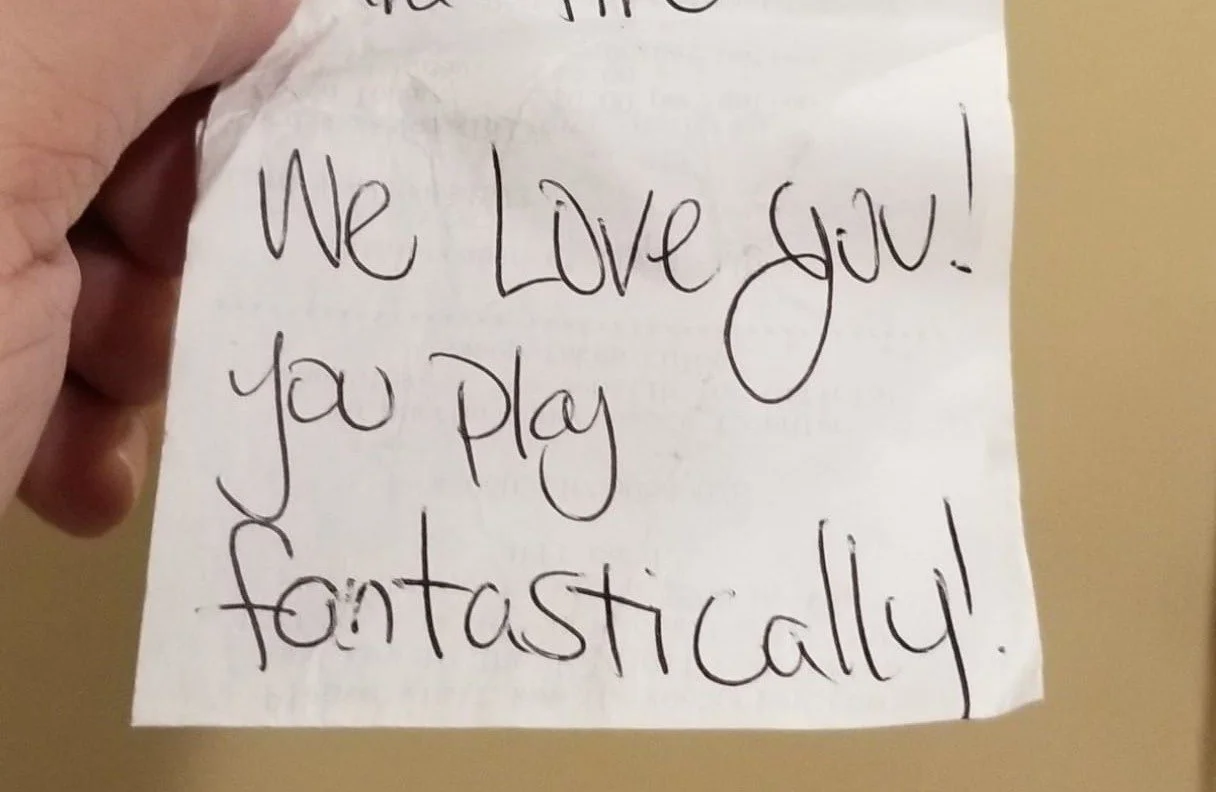 We Love you!
you play
fantastically!